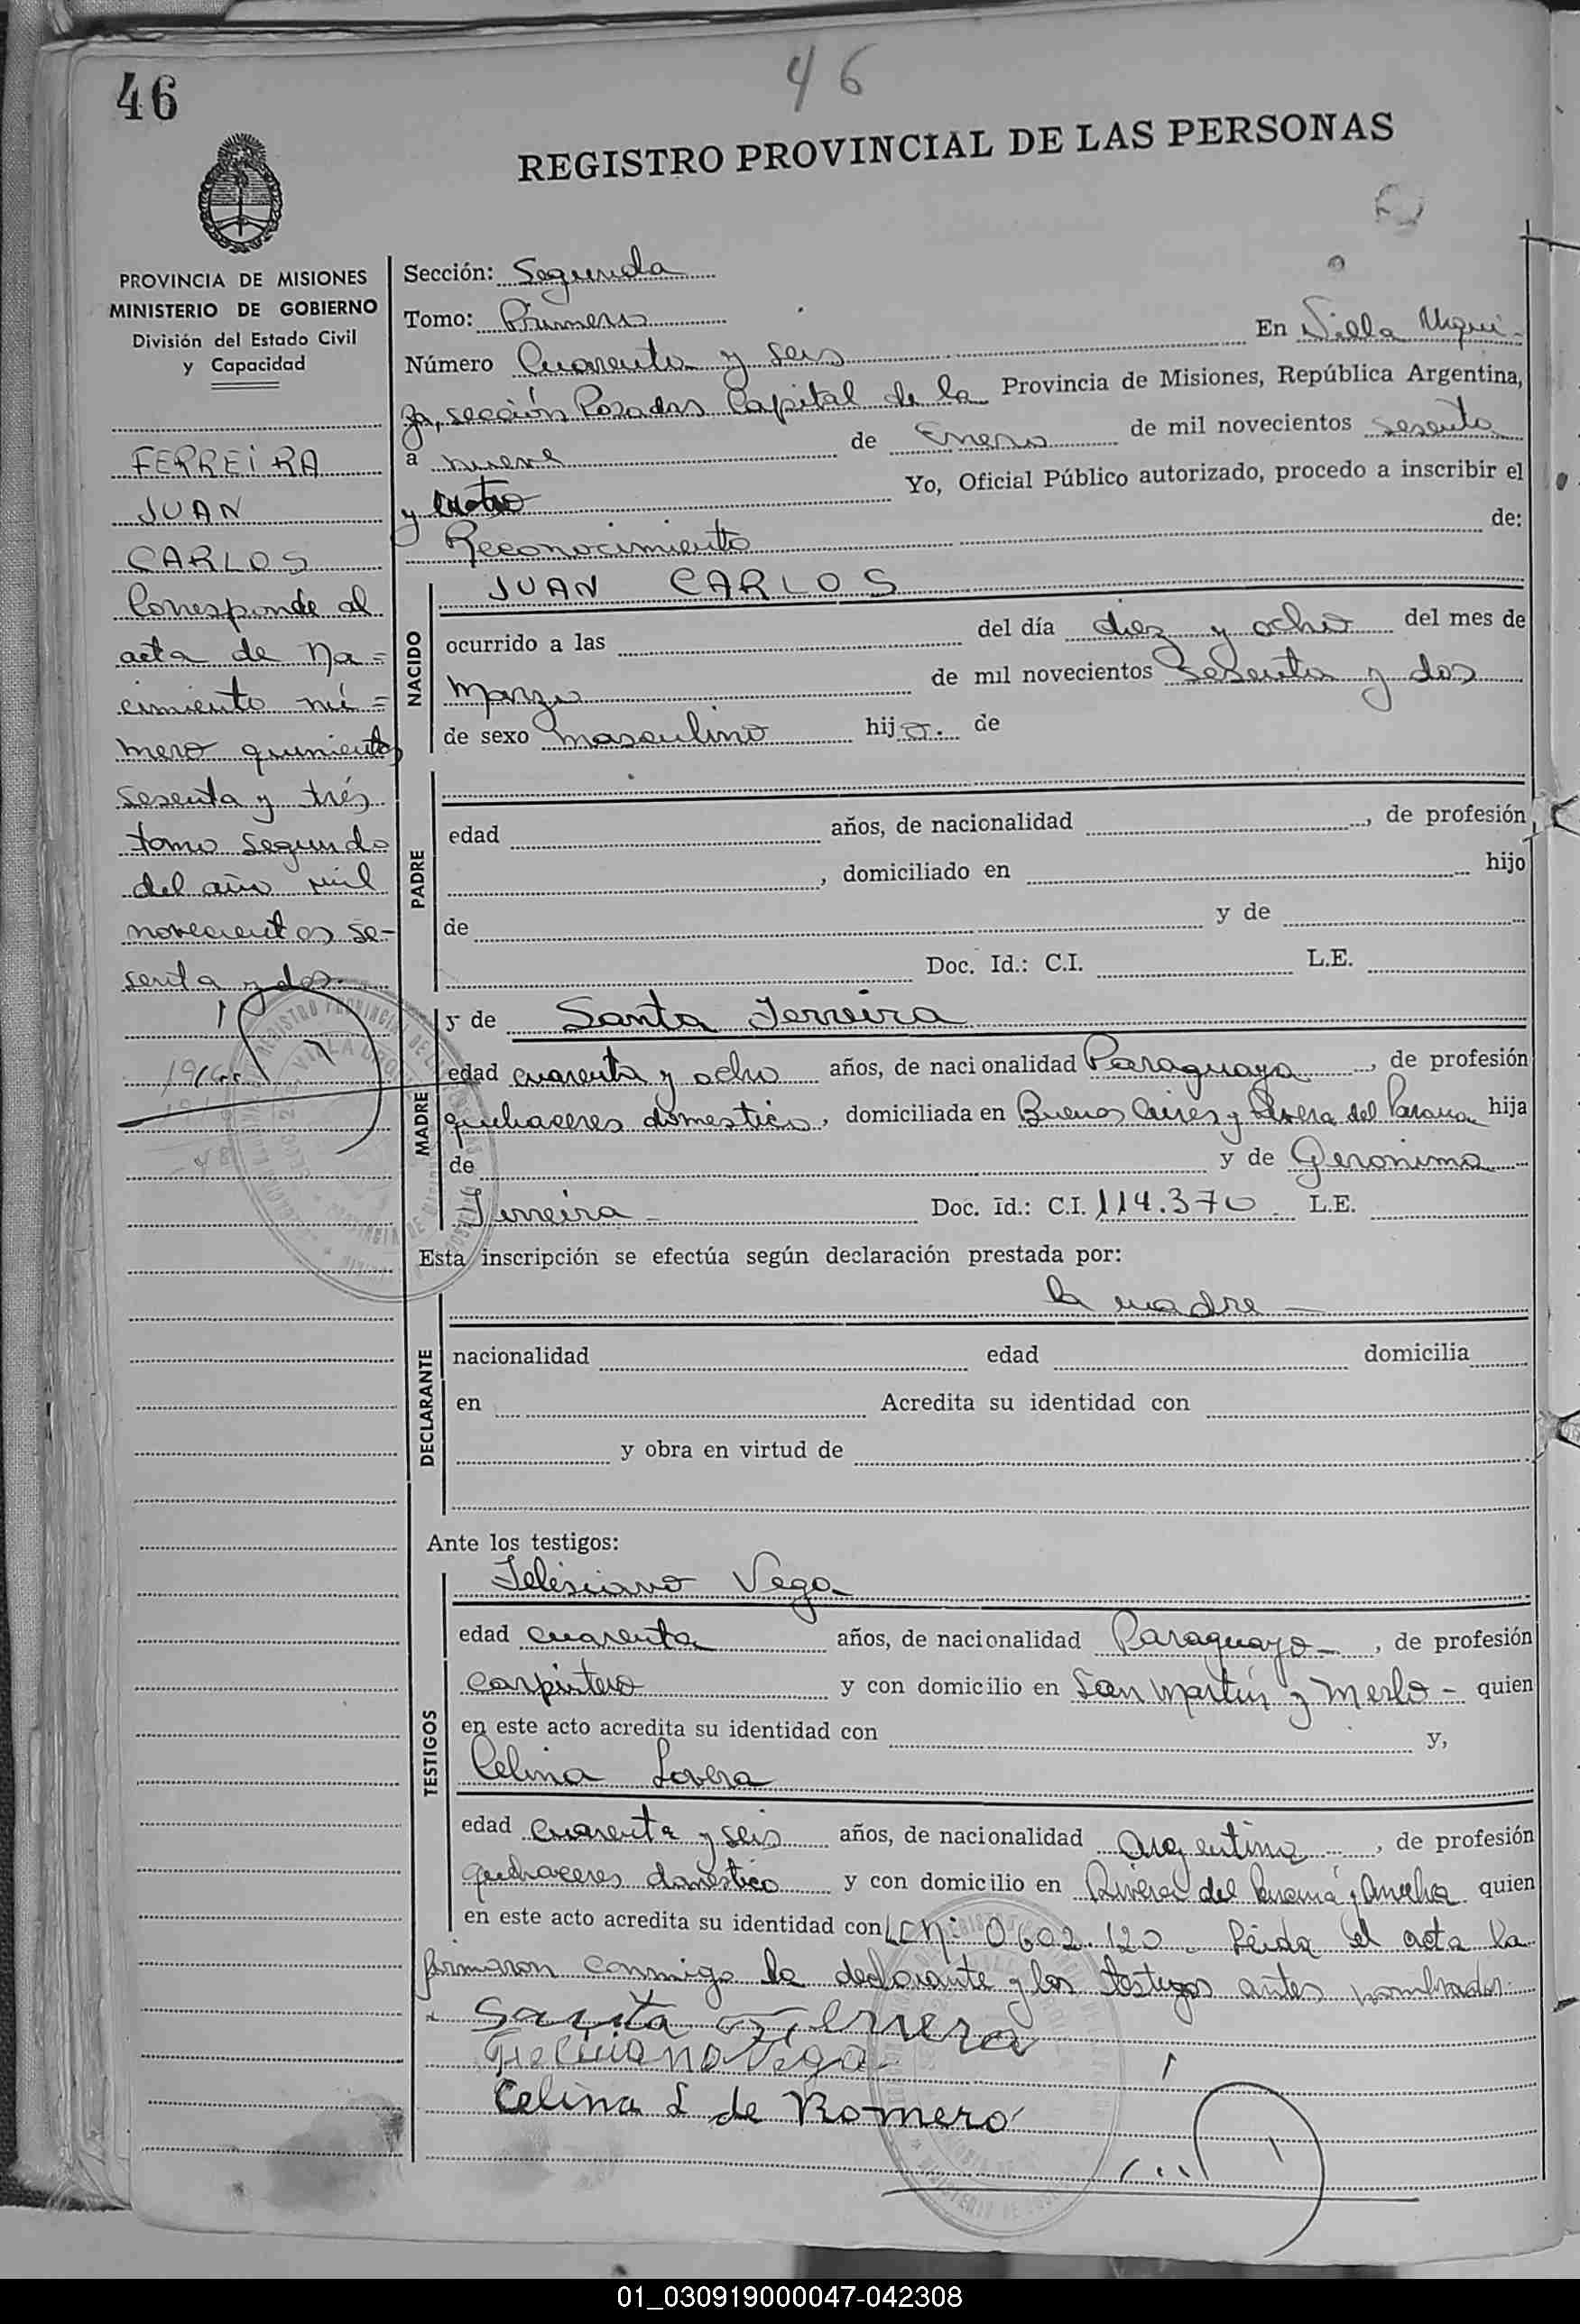 46
46
REGISTRO PROVINCIAL DE LAS PERSONAS
PROVINCIA DE MISIONES
MINISTERIO DE GOBIERNO
División del Estado Civil
y Capacidad
FERREIRA
JUAN
CARLOS
Corresponde al
acta de na=
cimiento nú=
mero quinientos
sesenta y trés
tomo segundo
del año mil
novecientos se-
senta y dos.
Sección: Segunda
Tomo: Primero
Número Cuarenta y seis En Villa Urqui-
za, sección Posadas Capital de la Provincia de Misiones, República Argentina,
a nueve de Enero de mil novecientos sesenta
y cuatro Yo, Oficial Público autorizado, procedo a inscribir el
Reconocimiento de:
NACIDO
JUAN CARLOS
ocurrido a las del día diez y ocho del mes de
Marzo de mil novecientos sesenta y dos
de sexo masculino hijo. de
PADRE
edad años, de nacionalidad , de profesión
, domiciliado en hijo
de y de
Doc. Id.: C.I. L.E.
MADRE
y de Santa Ferreira
edad cuarenta y ocho años, de nacionalidad Paraguaya, de profesión
quehaceres domestico, domiciliada en Buenos Aires y Rivera del Parana hija
de y de Geronima
Ferreira - Doc. Id.: C.I. 114.370. L.E.
Esta inscripción se efectúa según declaración prestada por:
DECLARANTE
la madre -
nacionalidad edad domicilia
en Acredita su identidad con
y obra en virtud de
Ante los testigos:
TESTIGOS
Feliciano Vega
edad cuarenta años, de nacionalidad Paraguayo-, de profesión
carpintero y con domicilio en San Martín y Merlo - quien
en este acto acredita su identidad con y,
Celina Lovera
edad cuarenta y seis años, de nacionalidad argentina, de profesión
quehaceres domestico y con domicilio en Rivera del Paraná y quien
en este acto acredita su identidad con LC Nº 0602.120. Leida el acta la
firmaron conmigo la declarante y los testigos antes nombrados.
Santa Ferrera
Feliciano Vega
Celina L de Romero
01_030919000047-042308